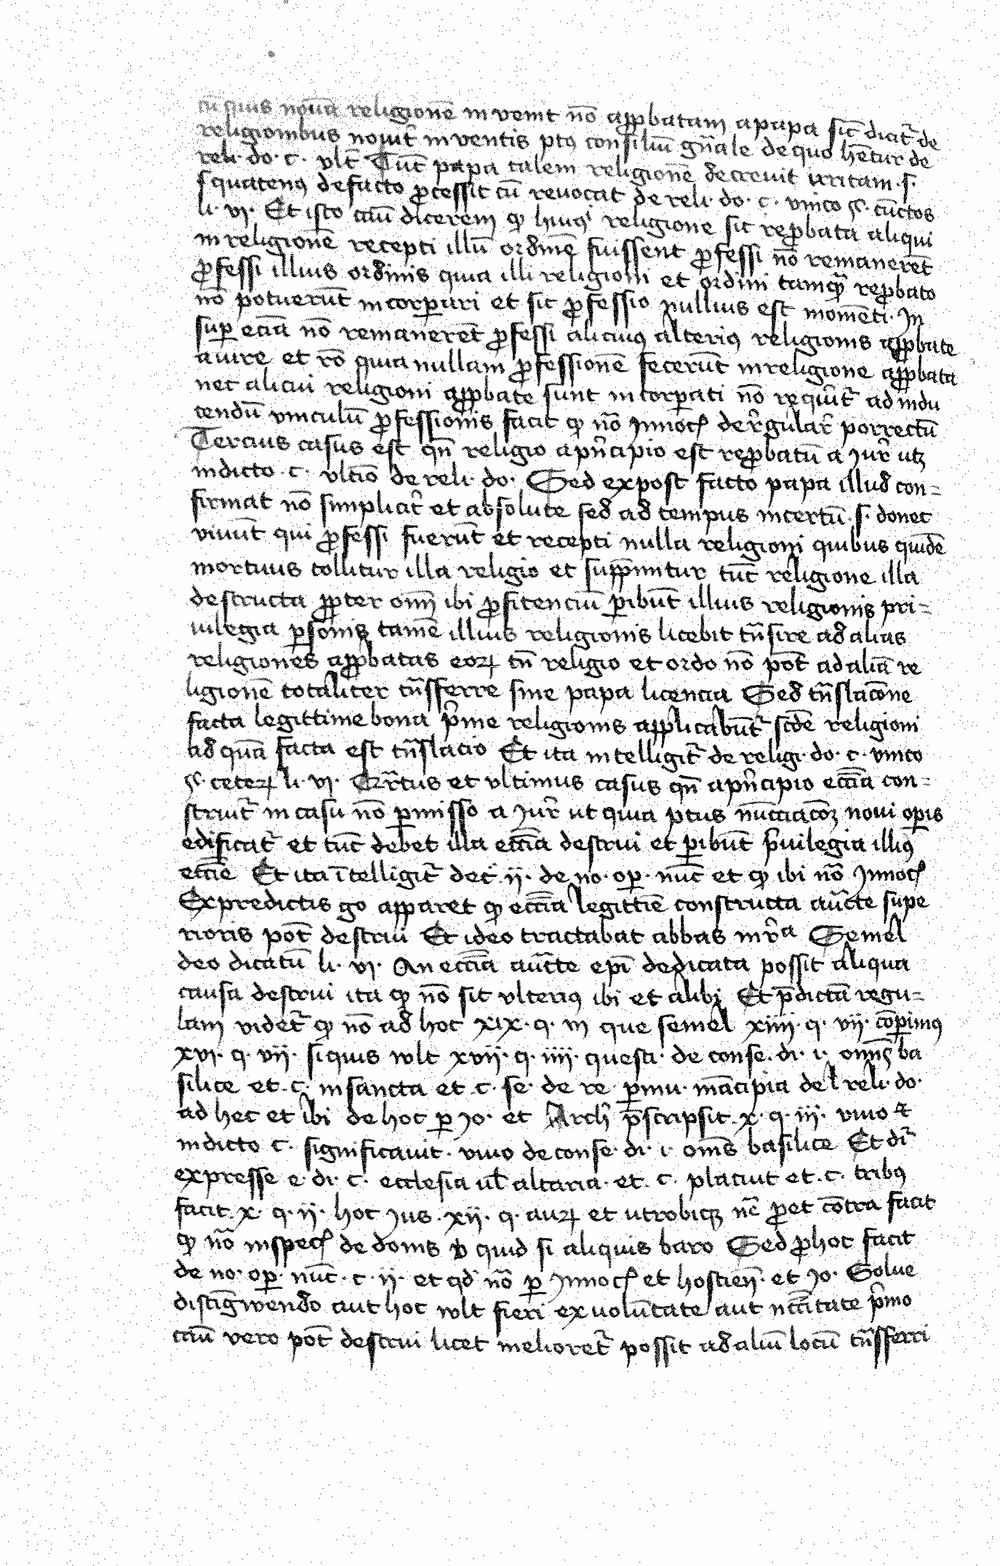 cū quis nouā religionē invenit nō apꝓbatam a papa sic̄ dicit᷑ de
religionibus noviter inventis ptꝰ consiliū gn̄ale de quo hētur de
reli· do· c· vlt̄· Tūc papa talem religionē decrevit irritam· s·
s quatenꝰ de facto ꝓcessit cū revocat de reli· do· c· vnico §· cūctos
li· vi· Et isto cāū dicerem ꝙ huiꝰ religione sic reꝓbata aliqui
in religionē recepti illū ordinē fuissent ꝓfessi nō remanerēt
ꝓfessi illius ordinis quia illi religioni et ordini tamqꝫ reꝓbato
nō potuerūt incorꝑari et sic ꝓfessio nullius est momēti· In
suꝑ eciā nō remanerēt ꝓfessi alicuiꝰ alteriꝰ religionis apꝓbate
a iure et rō quia nullam ꝓfessionē fecerūt in religione apꝓbata
nec alicui religioni apꝓbate sunt incorꝑati nō requirit᷑ ad indu
cendū vinculū ꝓfessionis facit ꝙ nō Innoc̄ de regular᷑ porrectū
Tercius casus est qn̄ religio a pn̄cipio est reꝓbatū a iur᷑ utꝫ
in dicto· c· vltīo de reli· do· Sed expost facto papa illud con=
firmat nō simplicit᷑ et absolute sed ad tempus incertū· s· donec
vivūt qui ꝓfessi fuerūt et recepti nulla religioni quibus quidē
mortuus tollitur illa religio et supp̄mitur tūc religione illa
destructa ꝓpter om̄ ibi ꝓfitenciū ꝑibūt illius religionis pri=
uilegia ꝑsonis tamē illius religionis licebit tn̄sire ad alias
religiones apꝓbatas eoꝝ tn̄ religio et ordo nō pōt ad aliā re
ligionē totaliter tn̄sferre sine papa licencia Sed tn̄slacōne
facta legittime bona p̄me religionis applicabūt᷑ sc̄de religioni
ad quā facta est tn̄slacio Et ita intelligit᷑ de religi· do· c· vnico
§· ceteꝝ li· vi· Qr̄tus et vltimus casus qn̄ a pn̄cipio ecc̄ia con=
struit᷑ in casu nō ꝑmisso a iur᷑ ut quia ptus nūcciacōꝫ novi oꝑis
edificat᷑ et tūc debet illa ecc̄ia destrui et ꝑibūt p̄uilegia illiꝰ
ecc̄ie Et ita ītelligit᷑ dec̄· ij· de no· oꝑ· nūc̄ et ꝙ ibi nō Innoc̄
Ex predictis go apparet ꝙ ecc̄ia legittīe constructa auc̄te supe
rioris pōt destrui Et ideo tractabat abbas in rᵃ Semel
deo dicatū li· vi· An ecc̄ia auc̄te ep̄i dedicata possit aliqua
causa destrui ita ꝙ nō sit vlteriꝰ ibi et alibi Et p̄dictā regu=
lam videt᷑ ꝙ nō ad hoc xix· q· iij que semel xiiij· q· vij· cōꝑimꝰ
xvi· q· vij· si quis wlt xvij· q· iiij· questi· de conse· di· i· om̄s ba
silice et· c· in sancta et· c· se· de re ꝑmu· mācipia del reli· do·
ad hec et ibi de hoc ꝑ Jo· et Arch̄ p̄scripsit· x· q· iij· vnio ⁊
in dicto c· significauit· vnio de conse· di· i· om̄s basilice Et di᷑
expresse e· di· c· ecclesia ul̄ altaria· et· c· placuit et· c· tribꝰ
facit· x· q· ij· hoc ius· xij· q· auꝝ et utrobiqꝫ nc̄ ꝓet cōtra facit
ꝙ nō inspec̄ de donis ꝟ quid si aliquis baro Sed ꝓ hoc facit
de no· oꝑ· nūc̄· c· ij· et qd̄ nō ꝑ Innoc̄ et hostien̄· et Jo· Solue
distīgwendo aut hoc wlt fieri ex volūtate aut nc̄citate p̄mo
cāū vero pōt destrui licet melioret᷑ possit ad aliū locū tn̄sferri